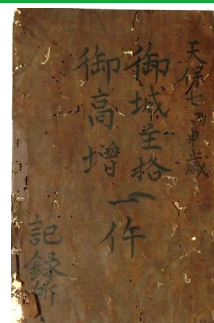 天保七丙申歳
御城主格
御高増
一件
記録所